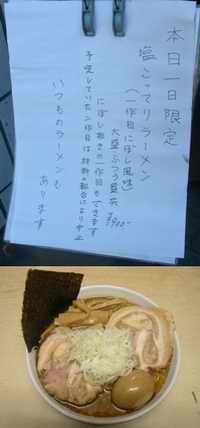 本日一日限定
塩こってりラーメン
(一作目にぼし風味)
大盛ふつう盛共
￥900-
にぼし抜きの一作目もできます
予定していた二作目は材料の都合により中止
いつものラーメンも
あります